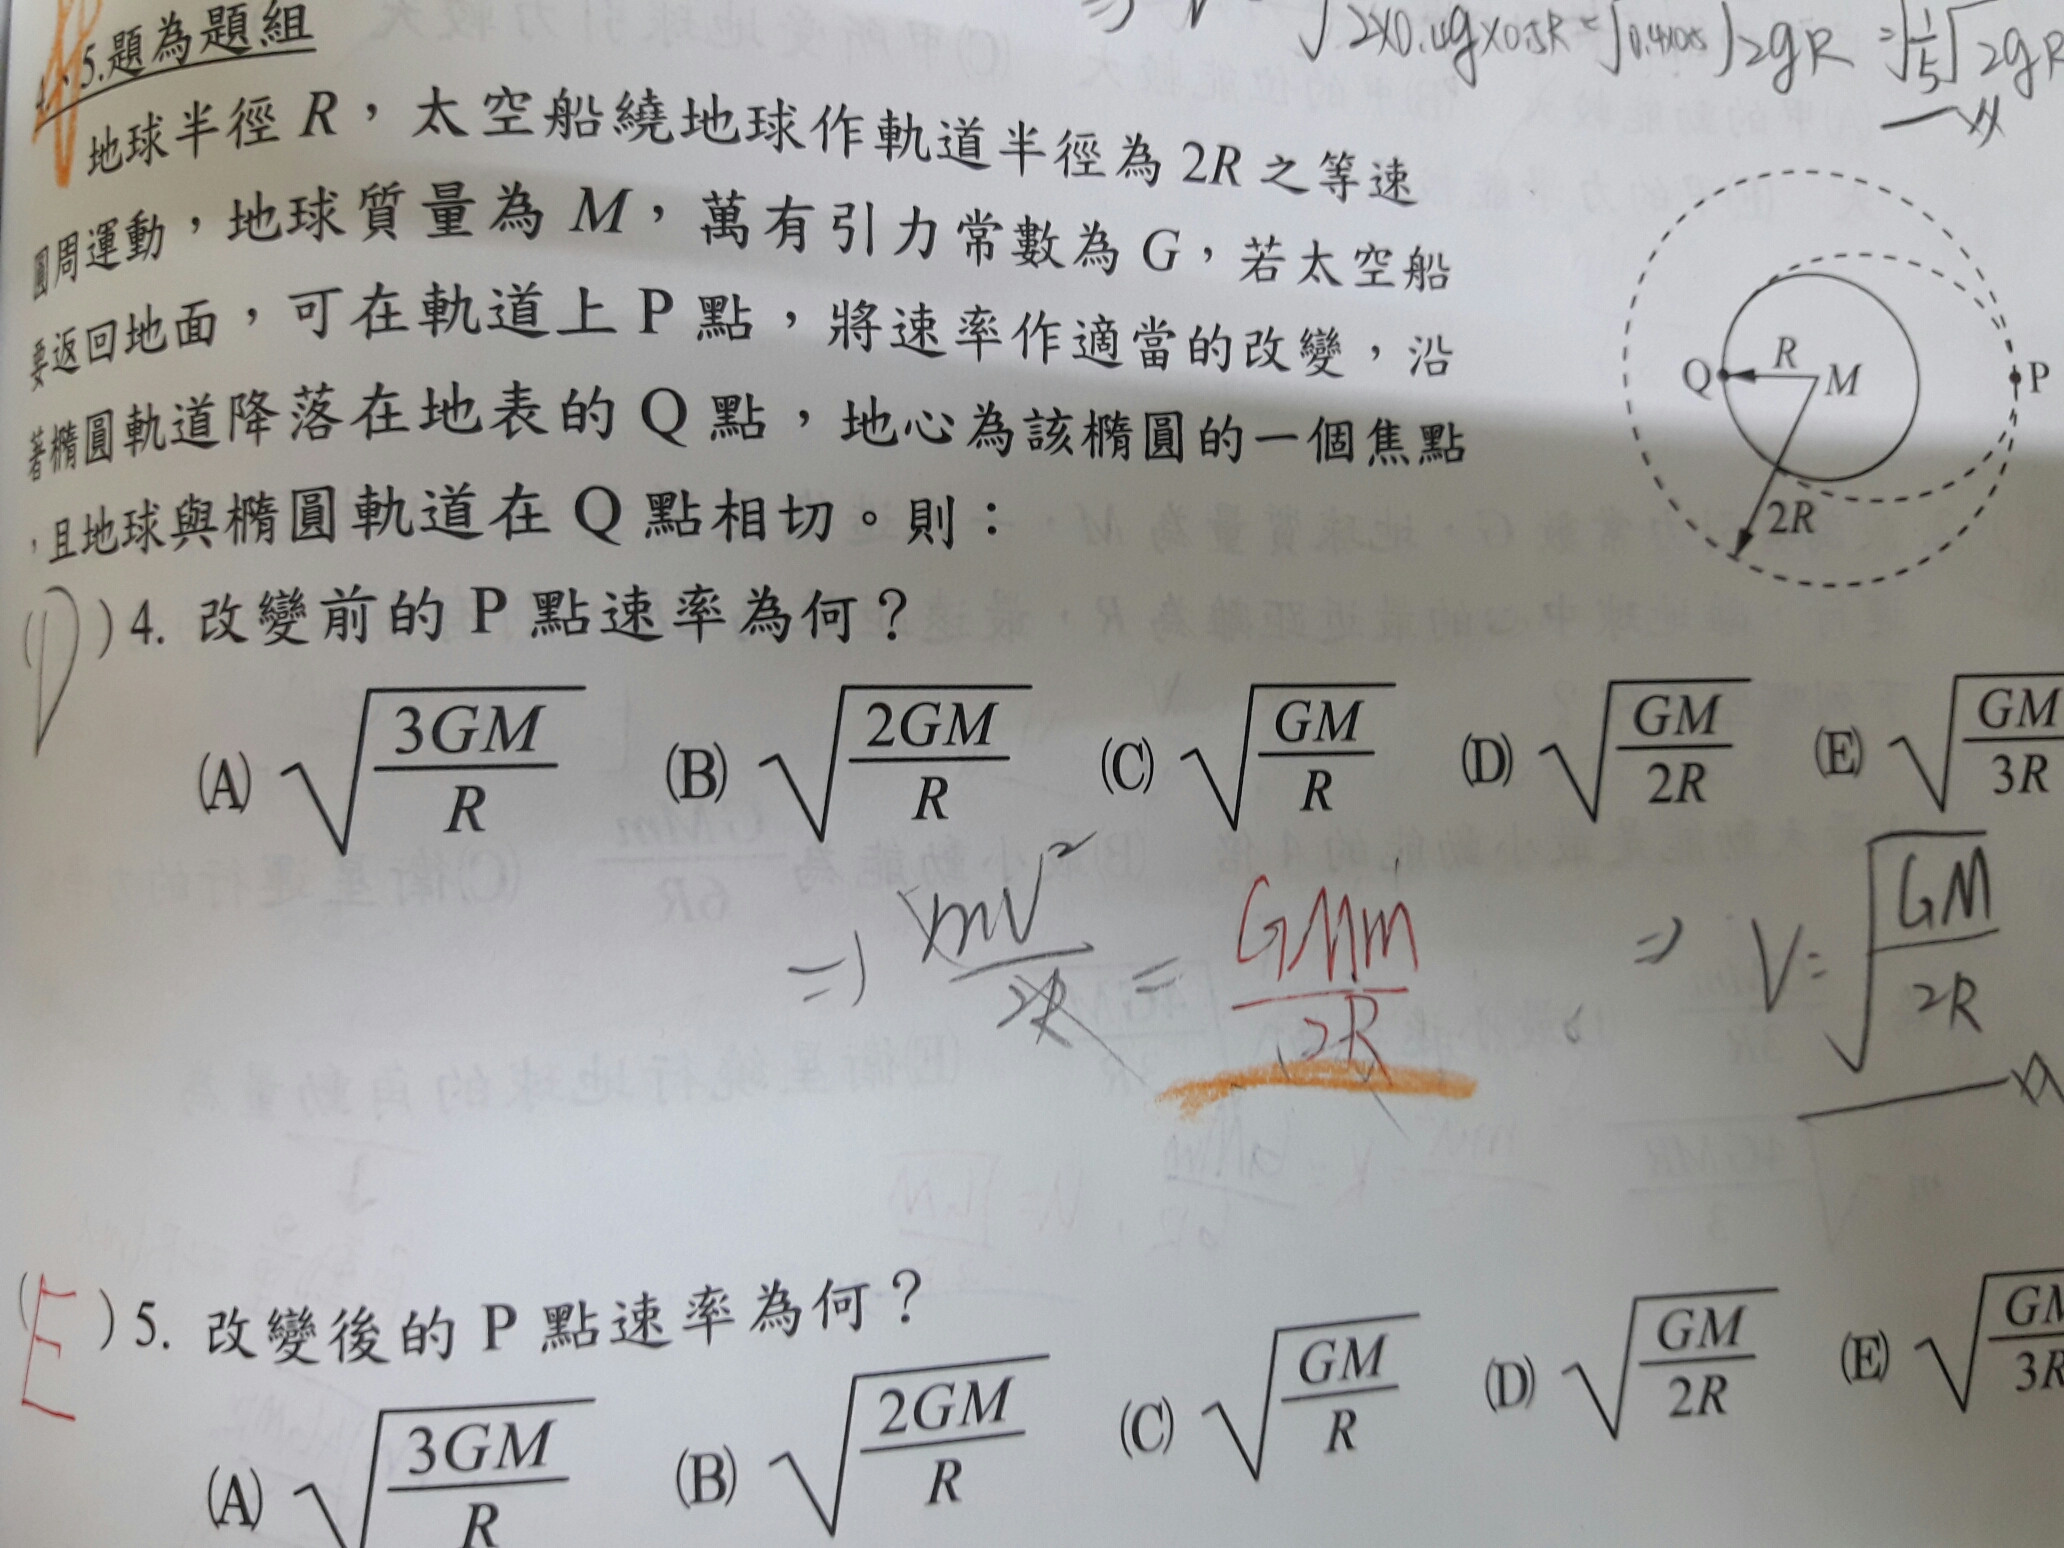 5.題為題組
地球半徑 R，太空船繞地球作軌道半徑為 2R 之等速
圓周運動，地球質量為 M，萬有引力常數為 G，若太空船
要返回地面，可在軌道上 P 點，將速率作適當的改變，沿
著橢圓軌道降落在地表的 Q 點，地心為該橢圓的一個焦點
，且地球與橢圓軌道在 Q 點相切。則：
Q R M P
2R
(D) 4. 改變前的 P 點速率為何？
(A) √(3GM/R) (B) √(2GM/R) (C) √(GM/R) (D) √(GM/2R) (E) √(GM/3R)
⇒ mV²/2R = GMm/2R ⇒ V = √(GM/2R)
(E) 5. 改變後的 P 點速率為何？
(A) √(3GM/R) (B) √(2GM/R) (C) √(GM/R) (D) √(GM/2R) (E) √(GM/3R)